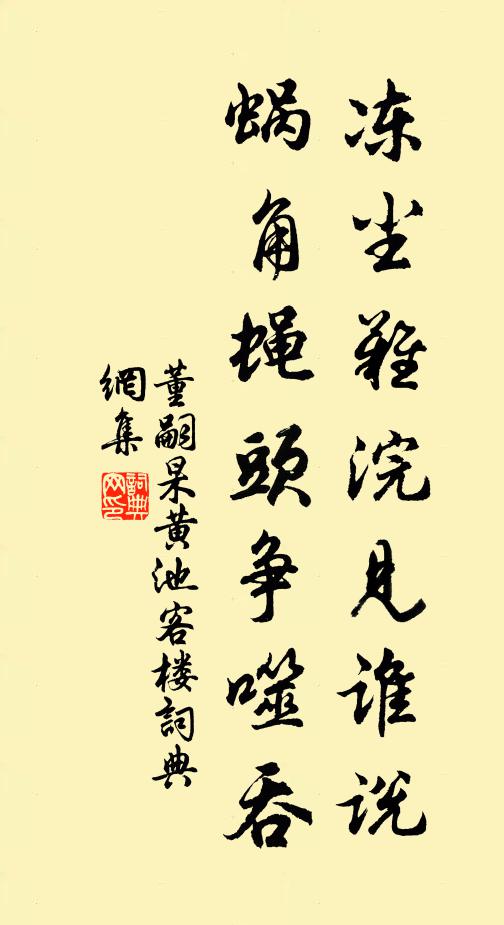 冻尘难浣见谁说
蜗角蝇头争噬吞
董嗣杲黄池客楼詞典
網集
詞典
网印